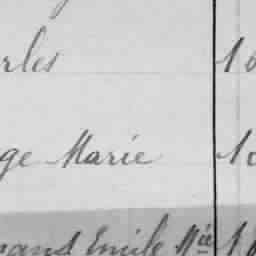 rles 1
ge Marie 1
mand Emile Mie 1